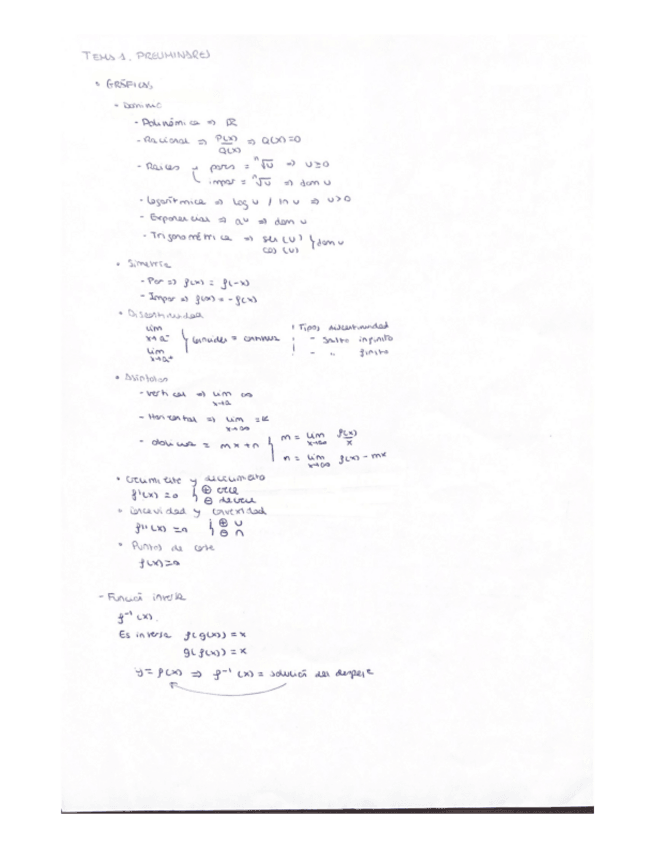 TEMA 1. PRELIMINARES
• GRÁFICAS
- Dominio
- Polinómica ⇒ ℝ
- Racional ⇒ P(x)/Q(x) ⇒ Q(x)=0
- Raíces { pares = ⁿ√u ⇒ u≥0
impar = ⁿ√u ⇒ dom u
- Logarítmica ⇒ log u / ln u ⇒ u>0
- Exponencial ⇒ aᵘ ⇒ dom u
- Trigonométrica ⇒ sen (u) } dom u
cos (u)
• Simetría
- Par ⇒ f(x) = f(-x)
- Impar ⇒ f(x) = -f(x)
• Discontinuidad
lim x→a⁻ } coinciden = continua | Tipos discontinuidad
| - Salto infinito
lim x→a⁺ | - " finito
• Asíntotas
- Vertical ⇒ lim x→a ∞
- Horizontal ⇒ lim x→∞ = K
- oblicua = mx+n { m = lim x→∞ f(x)/x
n = lim x→∞ f(x) - mx
• Crecimiento y decrecimiento
f'(x) =0 { ⊕ crece
⊖ decrece
• Concavidad y convexidad
f''(x) =0 { ⊕ ∪
⊖ ∩
• Puntos de corte
f(x)=0
- Función inversa
f⁻¹(x).
Es inversa f(g(x)) = x
g(f(x)) = x
y = f(x) ⇒ f⁻¹(x) = solución del despeje